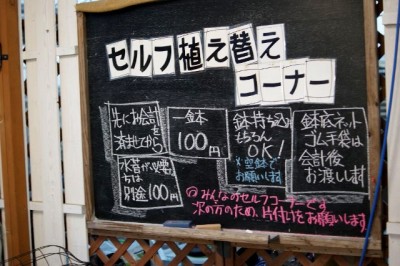 セルフ植え替え
コーナー
先にお会計を
済ませてから
一金本
100円
鉢持ち込
もちろん
OK!
※空鉢で
お願いします
鉢底ネット
ゴム手袋は
会計後
お渡しします
ちは
別途100円
みんなのセルフコーナーです
次の方のため、片付けをお願いします